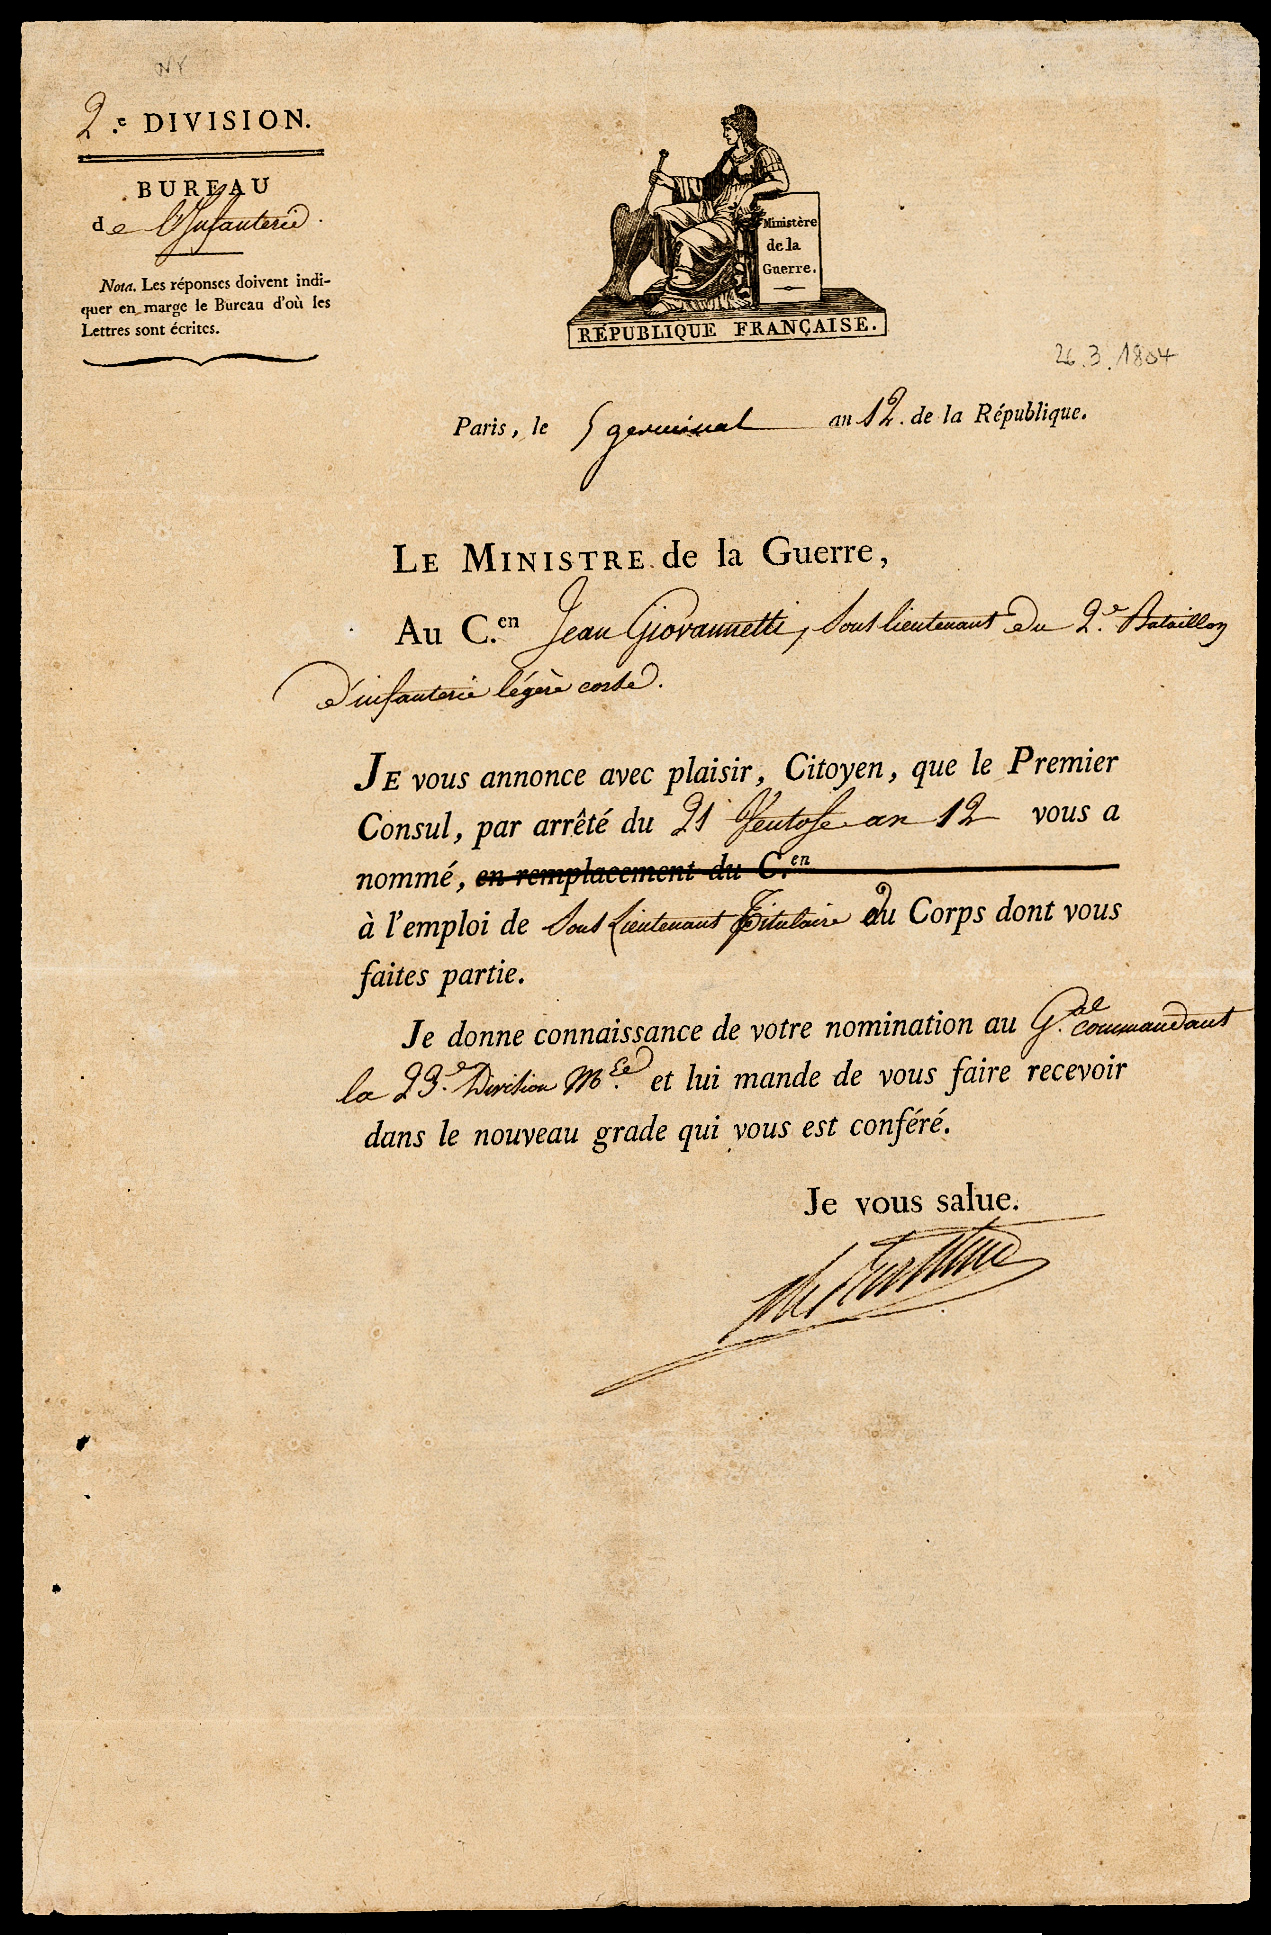 2.e DIVISION.
BUREAU
de l'Infanterie
Nota. Les réponses doivent indi-
quer en marge le Bureau d'où les
Lettres sont écrites.
Ministère
de la
Guerre.
RÉPUBLIQUE FRANÇAISE.
26.3.1804
Paris, le 5 germinal an 12. de la République.
LE MINISTRE de la Guerre,
Au C.en Jean Giovannetti, Sous lieutenant du 2.e Bataillon
d'infanterie légère corse.
JE vous annonce avec plaisir, Citoyen, que le Premier
Consul, par arrêté du 21 Ventose an 12 vous a
nommé, en remplacement du C.en
à l'emploi de Sous Lieutenant Titulaire du Corps dont vous
faites partie.
Je donne connaissance de votre nomination au G.al commandant
la 23.e Division M.re et lui mande de vous faire recevoir
dans le nouveau grade qui vous est conféré.
Je vous salue.